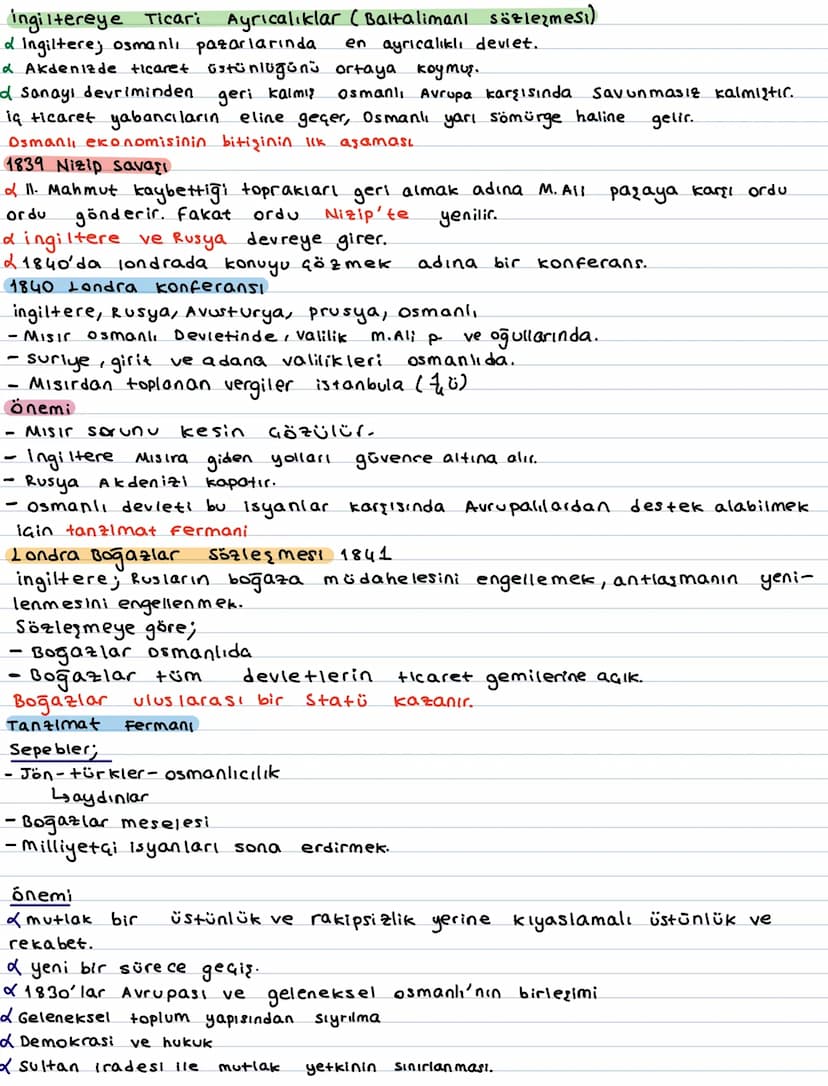 İngiltereye Ticari Ayrıcalıklar (Baltalimanı sözleşmesi)
α İngiltere; osmanlı pazarlarında en ayrıcalıklı devlet.
α Akdenizde ticaret üstünlüğünü ortaya koymuş.
α Sanayi devriminden geri kalmış osmanlı Avrupa karşısında savunmasız kalmıştır.
iç ticaret yabancıların eline geçer, Osmanlı yarı sömürge haline gelir.
Osmanlı ekonomisinin bitişinin ilk aşaması
1839 Nizip Savaşı
α II. Mahmut kaybettiği toprakları geri almak adına M. Ali paşaya karşı ordu
ordu gönderir. Fakat ordu Nizip'te yenilir.
α ingiltere ve Rusya devreye girer.
α 1840'da londrada konuyu çözmek adına bir konferans.
1840 Londra konferansı
ingiltere, Rusya, Avusturya, prusya, osmanlı
- Mısır osmanlı Devletinde, valilik m.Ali p ve oğullarında.
- suriye, girit ve adana valilikleri osmanlıda.
- Mısırdan toplanan vergiler istanbula (¼ ü)
önemi
- Mısır sorunu kesin çözülür.
- İngiltere Mısıra giden yolları güvence altına alır.
- Rusya Akdenizi kapatır.
- osmanlı devleti bu isyanlar karşısında Avrupalılardan destek alabilmek
için tanzimat fermani
Londra Boğazlar Sözleşmesi 1841
ingiltere; Rusların boğaza müdahelesini engellemek, antlaşmanın yeni-
lenmesini engellenmek.
Sözleşmeye göre;
- Boğazlar osmanlıda
- Boğazlar tüm devletlerin ticaret gemilerine açık.
Boğazlar uluslarası bir statü kazanır.
Tanzimat Fermanı
Sepebler;
- Jön-türkler- osmanlıcılık
↳aydınlar
- Boğazlar meselesi
- Milliyetçi isyanları sona erdirmek.
önemi
α mutlak bir üstünlük ve rakipsizlik yerine kıyaslamalı üstünlük ve
rekabet.
α yeni bir sürece geçiş.
α 1830'lar Avrupası ve geleneksel osmanlı'nın birleşimi
α Geleneksel toplum yapısından sıyrılma
α Demokrasi ve hukuk
α Sultan iradesi ile mutlak yetkinin sınırlanması.